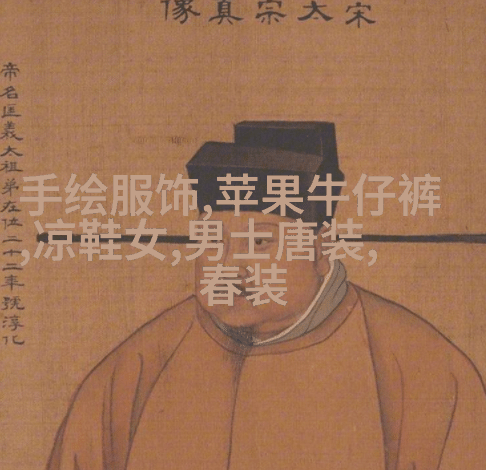 宋太宗真像
帝名匡義太祖弟在位二十二年號淳化
手绘服饰,苹果牛仔裤
,凉鞋女,男士唐装,
春装